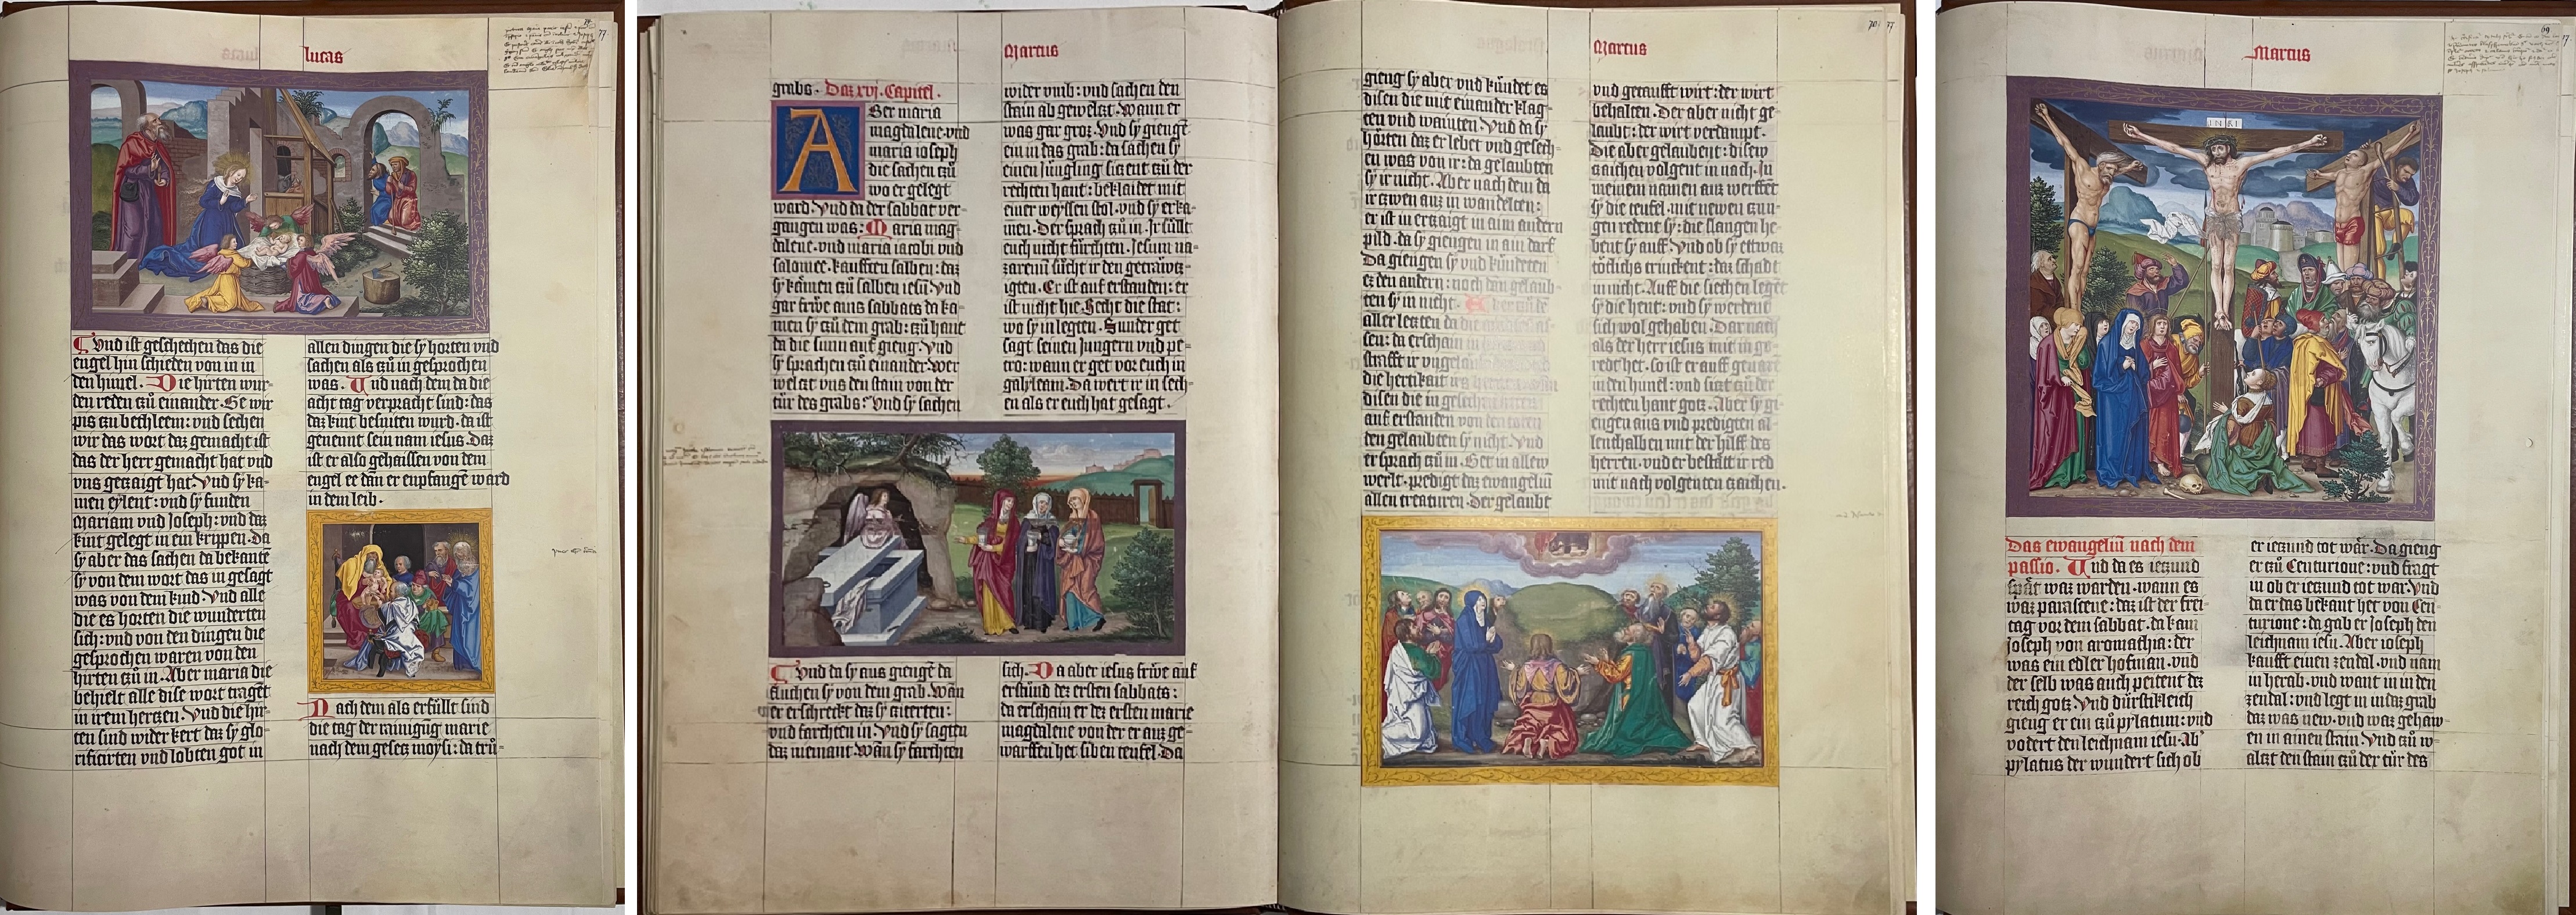 lucas
Vnd ist geschechen das die
engel hin schieden von in in
den himel. Die hirten wur-
den reden czů einander. Ge wir
pis czu bechleem: vnd sechen
wir das wort daz gemacht ist
das der herr gemacht hat vnd
vns geczaigt hat. Vnd sy ka-
men eylent: vnd sy funden
Mariam vnd Joseph: vnd daz
kint gelegt in ein krippen. Da
sy aber das sachen da bekantē
sy von dem wort das in gesagt
was von dem kind. Vnd alle
die es horten die wunderten
sich: vnd von den dingen die
gesprochen waren von den
hirten czů in. Aber maria die
behielt alle dise wort tragēt
in irem herczen. Vnd die hir-
ten sind wider kert daz sy glo-
rificirten vnd lobten got in
allen dingen die sy horten vnd
sachen als czů in gesprochen
was. Vnd nach dem da die
acht tag verpracht sind: das
daz kint besniten wurd. da ist
genennt sein nam iesus. Daz
ist er also gehaissen von dem
engel ee dān er enpfangē ward
in dem leib.
Nach dem als erfüllt sind
die tag der rainigūg marie
nach dem gesecz moysi: da trů-
Marcus
grabs. Daz xvj. Capitel.
Aber maria
magdalene vnd
maria ioseph
die sachen czů
wo er gelegt
ward. Vnd da der sabbat ver-
gangen was: Maria mag-
dalene. vnd maria iacobi vnd
salomee. kaufften salben: daz
sy kämen czů salben iesū. Vnd
gar früe ains sabbats da ka-
men sy czů dem grab: czů hant
da die sunn auf gieng. Vnd
sy sprachen czů einander. Wer
welczt vns den stain von der
tür des grabs? Vnd sy sachen
wider vmb: vnd sachen den
stain ab gewelczt. Wann er
was gar groz. Vnd sy giengē
ein in das grab: da sachen sy
einen Jüngling siczent czů der
rechten hant: beklaidet mit
einer weyssen stol. vnd sy erka-
men. Der sprach czů in. Ir süllt
euch nicht fürchten. Jesum na-
zarenū sücht ir den gekräwcz-
igten. Er ist auf erstanden: er
ist nicht hie. Secht die stat:
wo sy in legten. Sunder get
sagt seinen Jungern vnd pe-
tro: wann er get vor euch in
galyleam. Da wert ir in sech-
en als er euch hat gesagt.
Vnd da sy aus giengē da
fluchen sy von dem grab. Wān
er erschreckt daz sy cziterten:
vnd forchten in. Vnd sy sagten
daz niemant. Wān sy forchten
sich. Da aber iesus früe auf
erstůnd dez ersten sabbats:
da erschain er dez ersten marie
magdalene von der er auz ge-
warffen het siben teufel. Da
Marcus
gieng sy aber vnd kündet es
disen die mit einander klag-
ten vnd wainten. Vnd da sy
hörten daz er lebet vnd gesech-
en was von ir: da gelaubten
sy ir nicht. Aber nach dem da
ir czwen auz in wandelten:
er ist in erczaigt in aim andern
pild. da sy giengen in ain darf
Da giengen sy vnd kündeten
ez den andern: noch dan gelaub-
ten sy in nicht.
aller lecztn da die
sen: da erschain in
strafft ir vngelauben
die hertikait irs herczen
disen die in gesechen heten
auf erstanden von den toten
den gelaubten sy nicht. Vnd
er sprach czů in. Get in allew
werlt. predigt daz ewangeliū
allen creaturen. Der gelaubt
vnd getaufft wirt: der wirt
behalten. Der aber nicht ge-
laubt: der wirt verdampt.
Die aber gelaubent: disew
czaichen volgent in nach. In
meinem namen auz werffēt
sy die teufel. mit newen czun-
gen redent sy: die slangen he-
bent sy auff. Vnd ob sy ettwaz
tötlichs trinckent: daz schadt
in nicht. Auff die siechen legēt
sy die hent: vnd sy werdent
sich wol gehaben. Dar nach
als der herr iesus mit in ge-
redt het. so ist er auff genomen
in den himel: vnd siczt czů der
rechten hant gotz. Aber sy gi-
engen aus vnd predigten al-
lenthalben mit der hilff des
herren. vnd er bestätt ir red
mit nach volgenten czaichen.
Marcus
INRI
Das ewangeliū nach dem
passio. Vnd da es ieczund
spät waz warden. wann es
waz parasceue: daz ist der frei-
tag vor dem sabbat. da kam
Joseph von aromachia: der
was ein edler hofman. vnd
der selb was auch peitent dez
reich gotz. Vnd dürstikleich
gieng er ein czů pylatum: vnd
vodert den leichnam iesu. Ab'
pylatus der wundert sich ob
er ieczund tot wär. Da gieng
er czů Centurione: vnd fragt
in ob er ieczund tot war. Vnd
da er das bekant het von Cen-
turione: da gab er Joseph den
leichnam iesu. Aber ioseph
kaufft einen zendal. vnd nam
in herab. vnd want in in den
zendal: vnd legt in in daz grab
daz was new. vnd waz gehaw-
en in ainen stain. Vnd czů w-
alczt den stain czů der tür des